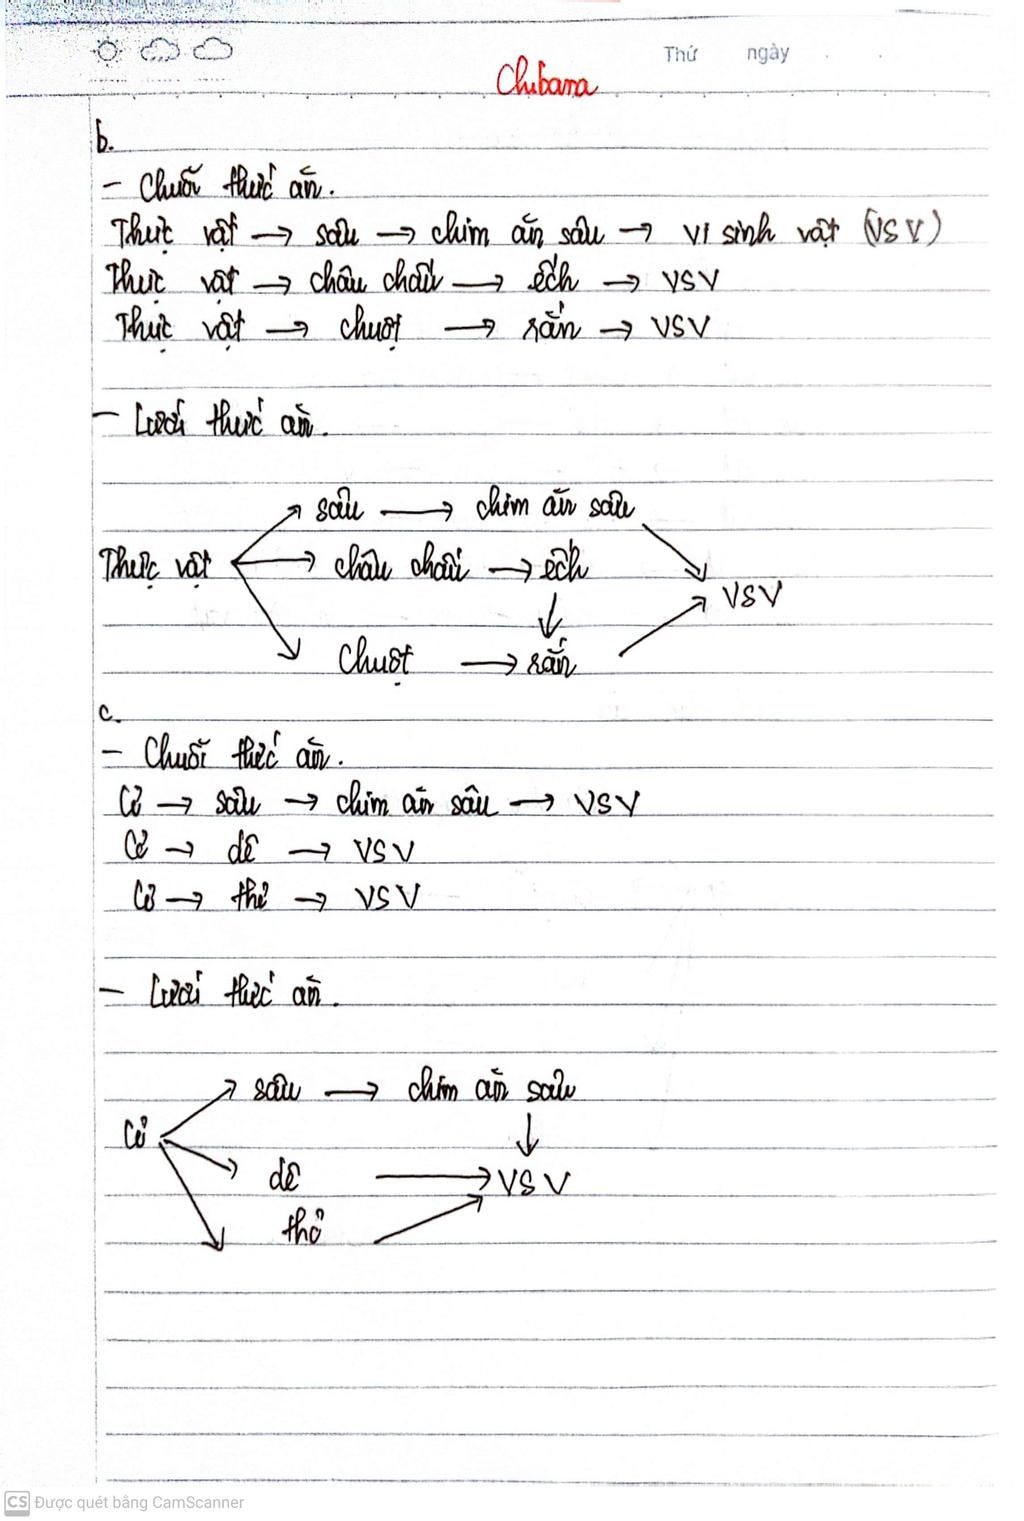 Thứ ngày
Chibana
b.
- Chuỗi thức ăn.
Thực vật → sâu → chim ăn sâu → vi sinh vật (VSV)
Thực vật → châu chấu → ếch → VSV
Thực vật → chuột → rắn → VSV
- Lưới thức ăn.
sâu → chim ăn sâu
Thực vật → châu chấu → ếch
VSV
Chuột → rắn
c.
- Chuỗi thức ăn.
Cỏ → sâu → chim ăn sâu → VSV
Cỏ → dê → VSV
Cỏ → thỏ → VSV
- Lưới thức ăn.
sâu → chim ăn sâu
Cỏ
dê → VSV
thỏ
CS Được quét bằng CamScanner